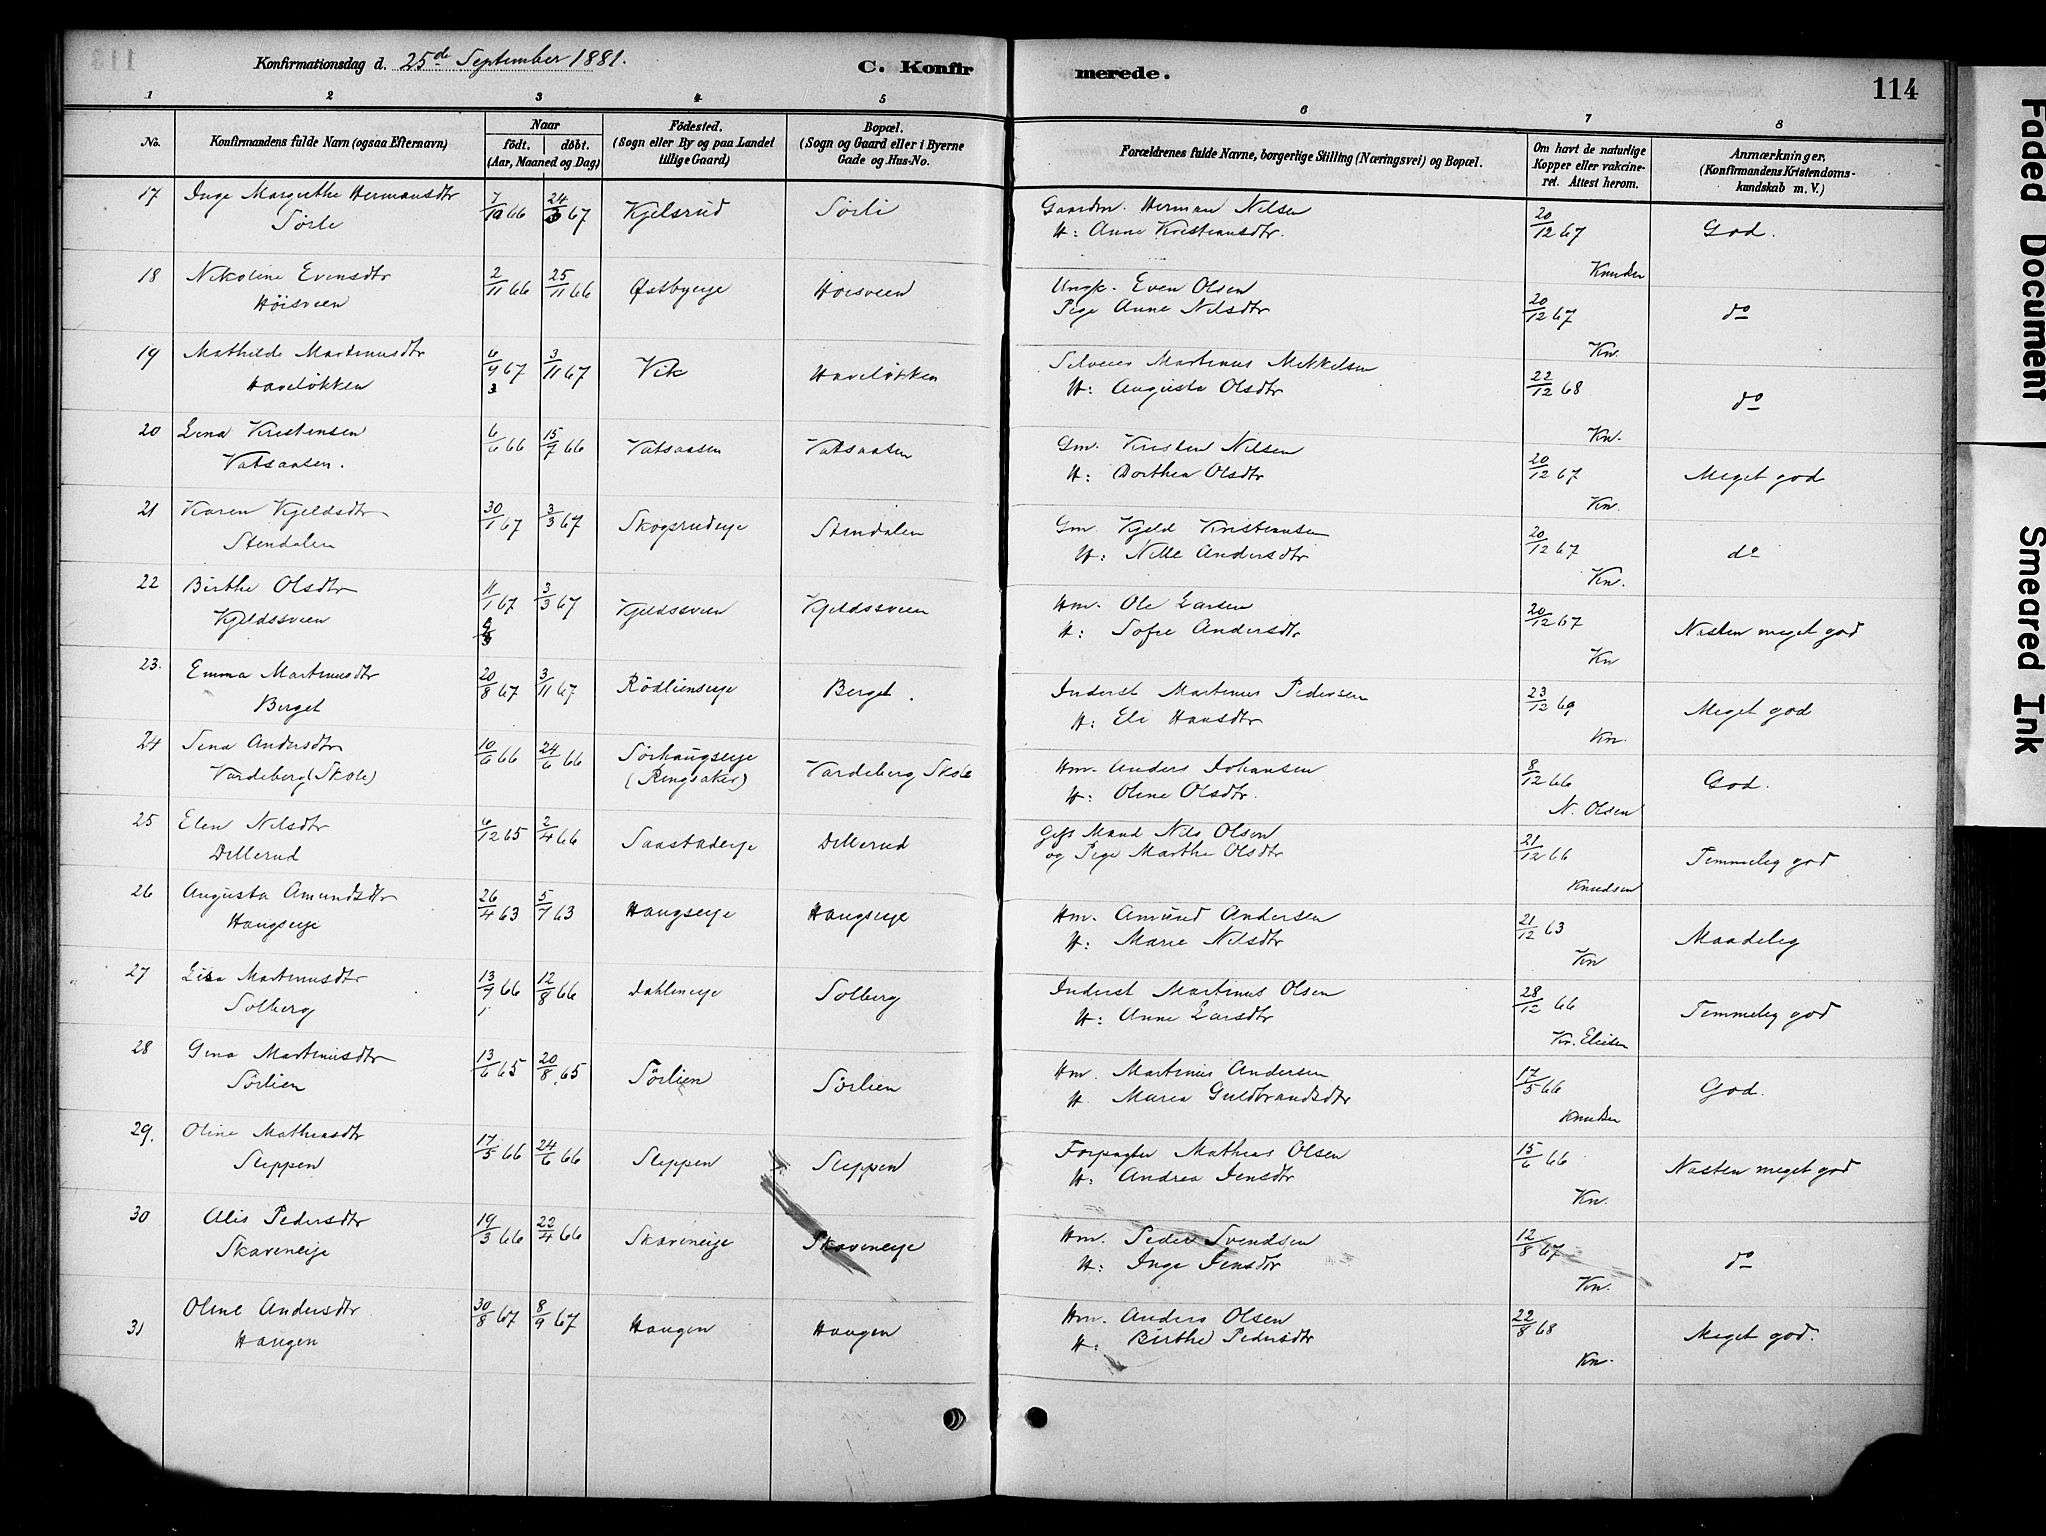 Konfirmationsdag d. 25de September 1881.
C. Konfirmerede.
114
1 2 3 4 5 6 7 8
No.
Konfirmandens fulde Navn (ogsaa Efternavn)
Naar
födt. döbt.
(Aar, Maaned og Dag)
Födested.
(Sogn eller By og paa Landet
tillige Gaard)
Bopæl.
(Sogn og Gaard eller i Byerne
Gade og Hus-No.
Forældrenes fulde Navne, borgerlige Stilling (Næringsvei) og Bopæl.
Om havt de naturlige
Kopper eller vakcine-
ret. Attest herom.
Anmærkninger,
(Konfirmandens Kristendoms-
kundskab m. V.)
17 Inge Margrethe Hermansdtr 7/10 66 24/3 67 Kjelsrud Sörli Gaardm. Herman Nilsen 20/12 67 God.
Sörli H: Anne Kristiansdtr.
Knudsen
18 Nikoline Evensdtr 2/11 66 25/11 66 Østbyeie Höisveen Ungk. Even Olsen 20/12 67 do
Höisveen Pige Anne Nilsdtr
Kn.
19 Mathilde Martinusdtr 6/9 67 3/11 67 Vik Haveløkken Selveier Martinus Mikkelsen 22/12 68 do
Haveløkken H: Augusta Olsdtr
Kn.
20 Lina Kristensen 6/6 66 15/7 66 Vatsaasen Vatsaasen Gm. Kristen Nilsen 20/12 67 Meget god
Vatsaasen. H: Dorthea Olsdtr
Kn.
21 Karen Kjeldsdtr 30/1 67 3/3 67 Skogsrudeie Stendalen Gm. Kjeld Kristiansen 20/12 67 do
Stendalen H: Nille Andersdtr
Kn.
22 Birthe Olsdtr 11/1 67 3/3 67 Kjeldssveen Kjeldssveen Hm. Ole Larsen 20/12 67 Næsten meget god
Kjeldssveen H: Sofie Andersdtr
Kn
23. Emma Martinusdtr 20/8 67 3/11 67 Rödlienseie Berget. Inderst Martinus Pedersen 23/12 69 Meget god
Berget H: Eli Hansdtr
Kn.
24 Sina Andersdtr 10/6 66 24/6 66 Sörhaugseie Vardeberg Skole Hm. Anders Johansen 8/12 66 God.
Vardeberg (Skole) (Ringsaker) H: Oline Olsdtr.
N. Olsen
25 Elen Nilsdtr 6/12 65 2/4 66 Saastadeie Dillerud Gift Mand Nils Olsen 21/12 66 Temmelig god
Dillerud og Pige Marthe Olsdtr
Knudsen
26 Augusta Amundsdtr 26/4 63 5/7 63 Haugseie Haugseie Hm. Amund Andersen 21/12 63 Maadelig
Haugseie H: Marie Nilsdtr
Kn
27 Lisa Martinusdtr 13/7 66 12/8 66 Dahleneie Solberg Inderst Martinus Olsen 28/12 66 Temmelig god
Solberg H: Anne Larsdtr
Kr. Eliesen
28 Gina Martinusdtr 13/6 65 20/8 65 Sörlien Sörlien Hm. Martinus Andersen 17/5 66 God.
Sörlien H. Maria Guldbrandsdtr
Knudsen
29. Oline Mathiasdtr 17/5 66 24/6 66 Sleppen Sleppen Forpagter Mathias Olsen 15/6 66 Næsten meget god
Sleppen H: Andrea Jensdtr
Kn.
30 Alis Pedersdtr 19/3 66 22/4 66 Skaveneie Skaveneie Hm. Peder Svendsen 12/8 67 do
Skaveneie H: Inge Jensdtr
Kn.
31 Oline Andersdtr 30/8 67 8/9 67 Haugen Haugen Hm. Anders Olsen 22/8 68 Meget god.
Haugen H: Birthe Pedersdtr
Kn.
Faded Document
Smeared Ink